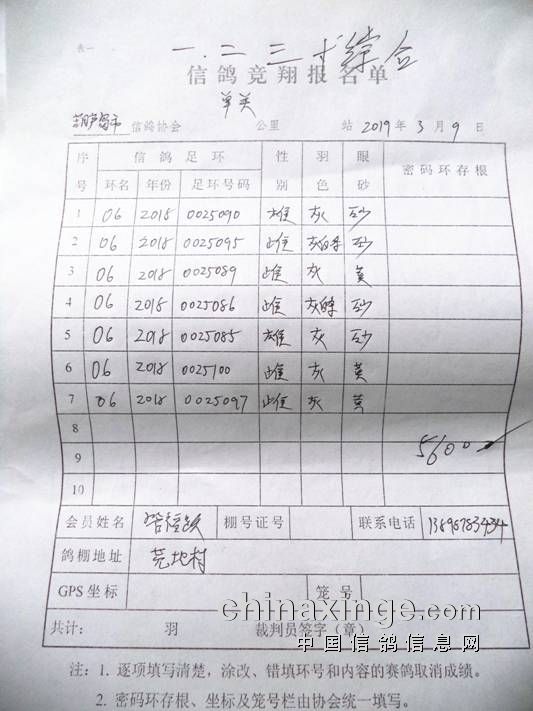 表一
一.二.三.十综合
信鸽竞翔报名单
单关
葫芦岛市 信鸽协会 公里 站 2019年3月9日
序号 信鸽足环 性别 羽色 眼砂 密码环存根
环名 年份 足环号码
1 06 2018 0025090 雄 灰 砂
2 06 2018 0025095 雌 灰白条 砂
3 06 2018 0025089 雌 灰 黄
4 06 2018 0025086 雌 灰白条 砂
5 06 2018 0025085 雄 灰 砂
6 06 2018 0025100 雌 灰 黄
7 06 2018 0025097 雌 灰 黄
8
9 5600
10
会员姓名 棚号证号 联系电话 13898783434
鸽棚地址 荒地村
GPS 坐标 笼号
共计： 羽 裁判员签字（章）
chinaxinge.com
中国信鸽信息网
注：1. 逐项填写清楚，涂改、错填环号和内容的赛鸽取消成绩。
2. 密码环存根、坐标及笼号栏由协会统一填写。